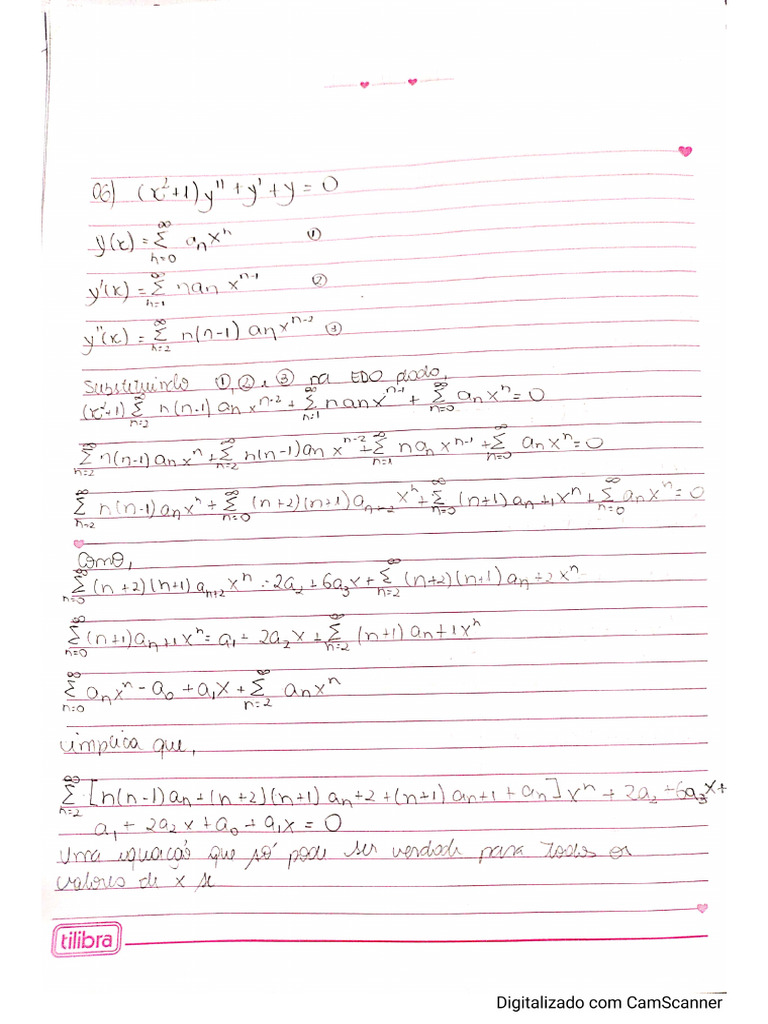 06) (x²+1)y'' + y' + y = 0
y(x) = ∞Σn=0 aₙxⁿ ①
y'(x) = ∞Σn=1 naₙ xⁿ⁻¹ ②
y''(x) = ∞Σn=2 n(n-1) aₙxⁿ⁻² ③
Substituindo ①, ② e ③ na EDO dado,
(x²+1) ∞Σn=2 n(n-1) aₙ xⁿ⁻² + ∞Σn=1 naₙxⁿ⁻¹ + ∞Σn=0 aₙxⁿ = 0
∞Σn=2 n(n-1)aₙxⁿ + ∞Σn=2 n(n-1)aₙ xⁿ⁻² + ∞Σn=1 naₙ xⁿ⁻¹ + ∞Σn=0 aₙxⁿ = 0
∞Σn=2 n(n-1)aₙxⁿ + ∞Σn=0 (n+2)(n+1)aₙ₊₂ xⁿ + ∞Σn=0 (n+1)aₙ₊₁xⁿ + ∞Σn=0 aₙxⁿ = 0
Como,
∞Σn=0 (n+2)(n+1)aₙ₊₂xⁿ = 2a₂ + 6a₃x + ∞Σn=2 (n+2)(n+1)aₙ₊₂xⁿ
∞Σn=0 (n+1)aₙ₊₁xⁿ = a₁ + 2a₂x + ∞Σn=2 (n+1)aₙ₊₁xⁿ
∞Σn=0 aₙxⁿ = a₀ + a₁x + ∞Σn=2 aₙxⁿ
implica que,
∞Σn=2 [n(n-1)aₙ + (n+2)(n+1)aₙ₊₂ + (n+1)aₙ₊₁ + aₙ]xⁿ + 2a₂ + 6a₃x +
a₁ + 2a₂x + a₀ + a₁x = 0
Uma equação que só pode ser verdade para todos os
valores de x se
tilibra
Digitalizado com CamScanner